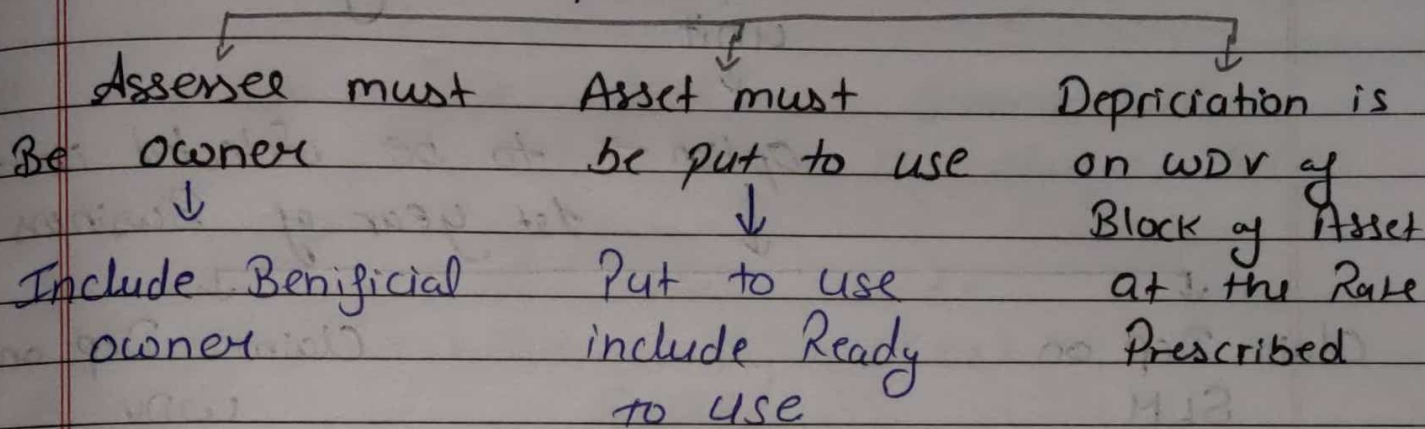 Assessee must
Be owner
↓
Include Benificial
owner
Asset must
be put to use
↓
Put to use
include Ready
to use
Depriciation is
on WDV of
Block of Asset
at the Rate
Prescribed